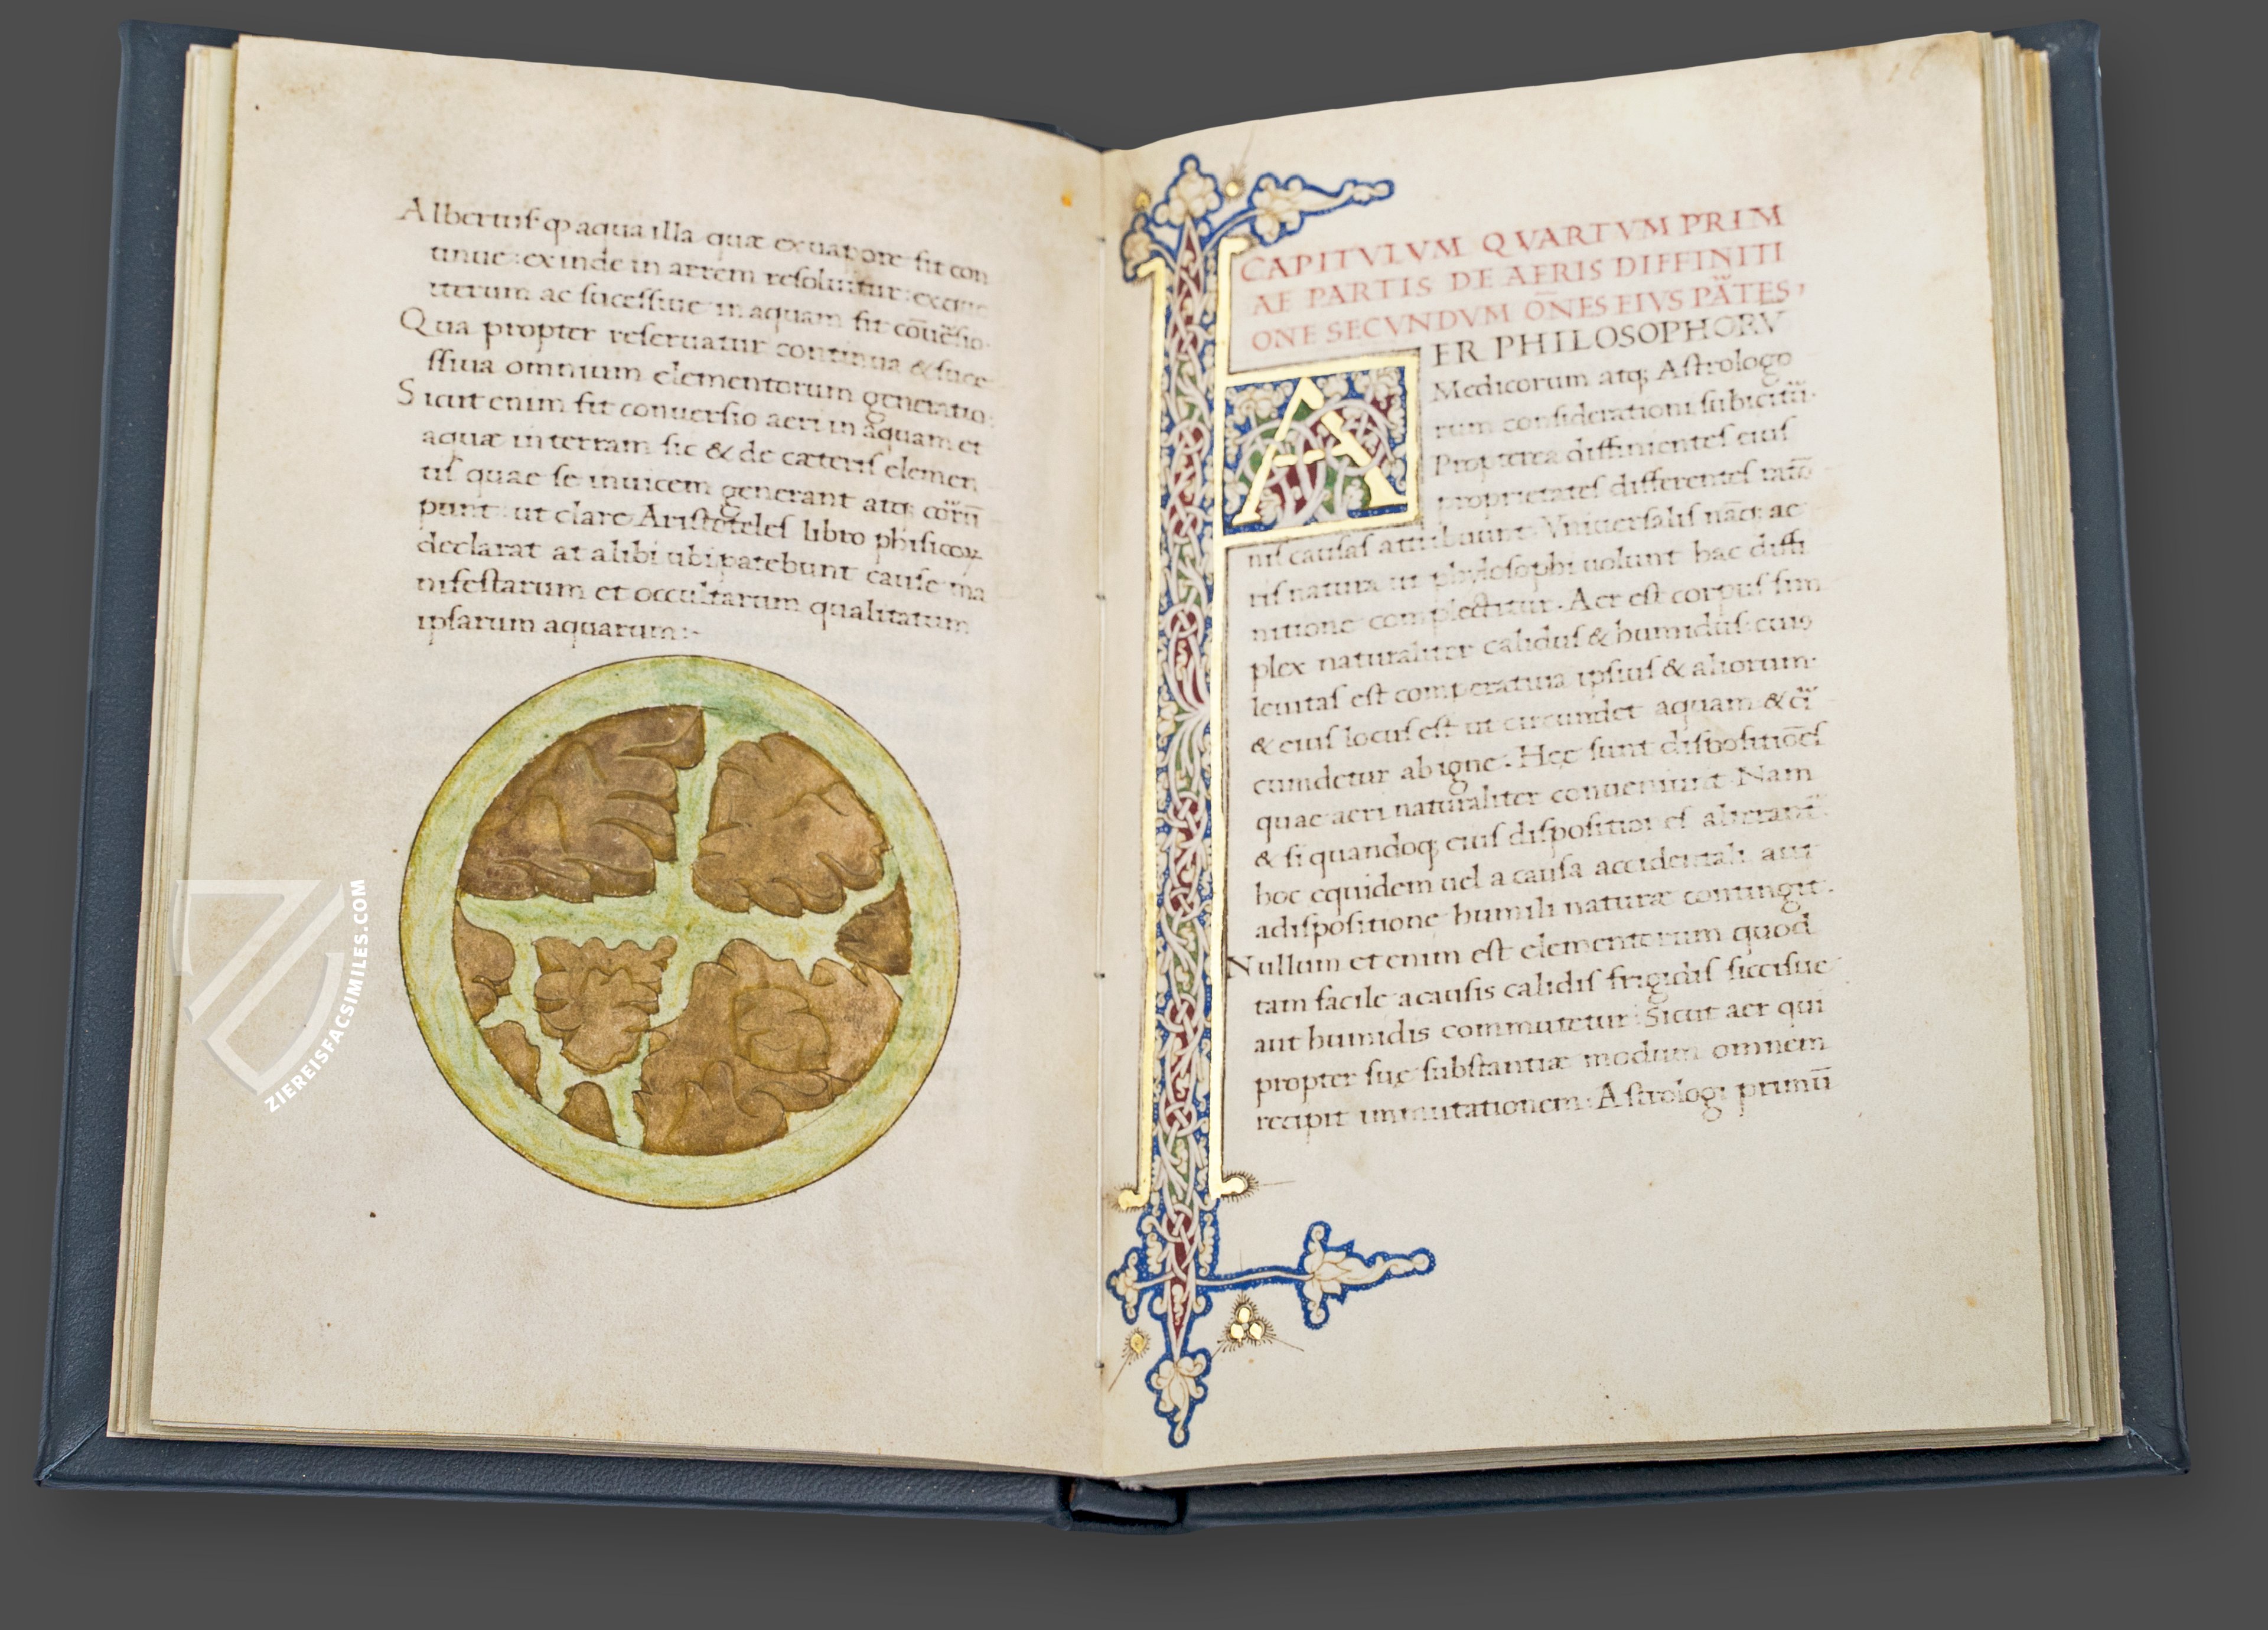 Albertus. ꝙ aqua illa quæ ex uapore fit con
tinue: exinde in aerem resoluitur: exque
iterum ac sucessiue in aquam fit cōuẽsio.
Qua propter reseruatur continua & suce
ssiua omnium elementorum generatio.
Sicut enim fit conuersio aeri in aquam et
aquæ in terram sic & de cæteris elemen
tis quae se inuicem generant atq; corrū
punt: ut clare Aristoteles libro phisicoꝝ
declarat at alibi ubi patebunt cause ma
nifestarum et occultarum qualitatum
ipsarum aquarum:-
16
CAPITVLVM QVARTVM PRIM
AE PARTIS DE AERIS DIFFINITI
ONE SECVNDVM OÑES EIVS PÃTES,
AER PHILOSOPHORV
Medicorum atq; Astrologo
rum considerationi subicitũ.
Propterea diffinientes eius
proprietates differentes
nis causas attribuunt. Vniuersalis nãq; ae
ris natura ut phylosophi uolunt hac diffi
nitione complectitur. Aer est corpus sim
plex naturaliter calidus & humidus: cuiꝰ
leuitas est comperatiua ipsius & aliorum.
& eius locus est ut circundet aquam & cĩ
cundetur ab igne. Hęc sunt dispositiões
quae aeri naturaliter conueniunt. Nam
& si quandoq; eius dispositiones alterant̃.
hoc equidem uel a causa accidentali aut
adispositione humili naturæ contingit.
Nullum etenim est elementorum quod
tam facile acausis calidis frigidis siccisue
aut humidis commutetur. Sicut aer qui
propter suę substantiæ modum omnem
recipit inmutationem. Astrologi primū
ZIEREISFACSIMILES.COM